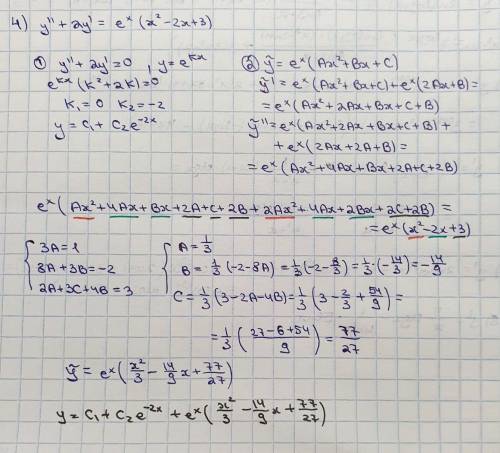 4) y'' + 2y' = eˣ (x² - 2x + 3)
① y'' + 2y' = 0 , y = eᵏˣ
eᵏˣ (k² + 2k) = 0
k₁ = 0 k₂ = -2
y = C₁ + C₂e⁻²ˣ
② ỹ = eˣ (Ax² + Bx + C)
ỹ' = eˣ (Ax² + Bx + C) + eˣ (2Ax + B) =
= eˣ (Ax² + 2Ax + Bx + C + B)
ỹ'' = eˣ (Ax² + 2Ax + Bx + C + B) +
+ eˣ (2Ax + 2A + B) =
= eˣ (Ax² + 4Ax + Bx + 2A + C + 2B)
eˣ (Ax² + 4Ax + Bx + 2A + C + 2B + 2Ax² + 4Ax + 2Bx + 2C + 2B) =
= eˣ (x² - 2x + 3)
{ 3A = 1
8A + 3B = -2
2A + 3C + 4B = 3
{ A = 1/3
B = 1/3 (-2 - 8A) = 1/3 (-2 - 8/3) = 1/3 · (-14/3) = -14/9
C = 1/3 (3 - 2A - 4B) = 1/3 (3 - 2/3 + 54/9) =
= 1/3 ( (27 - 6 + 54)/9 ) = 77/27
ỹ = eˣ ( x²/3 - 14/9 x + 77/27 )
y = C₁ + C₂e⁻²ˣ + eˣ ( x²/3 - 14/9 x + 77/27 )